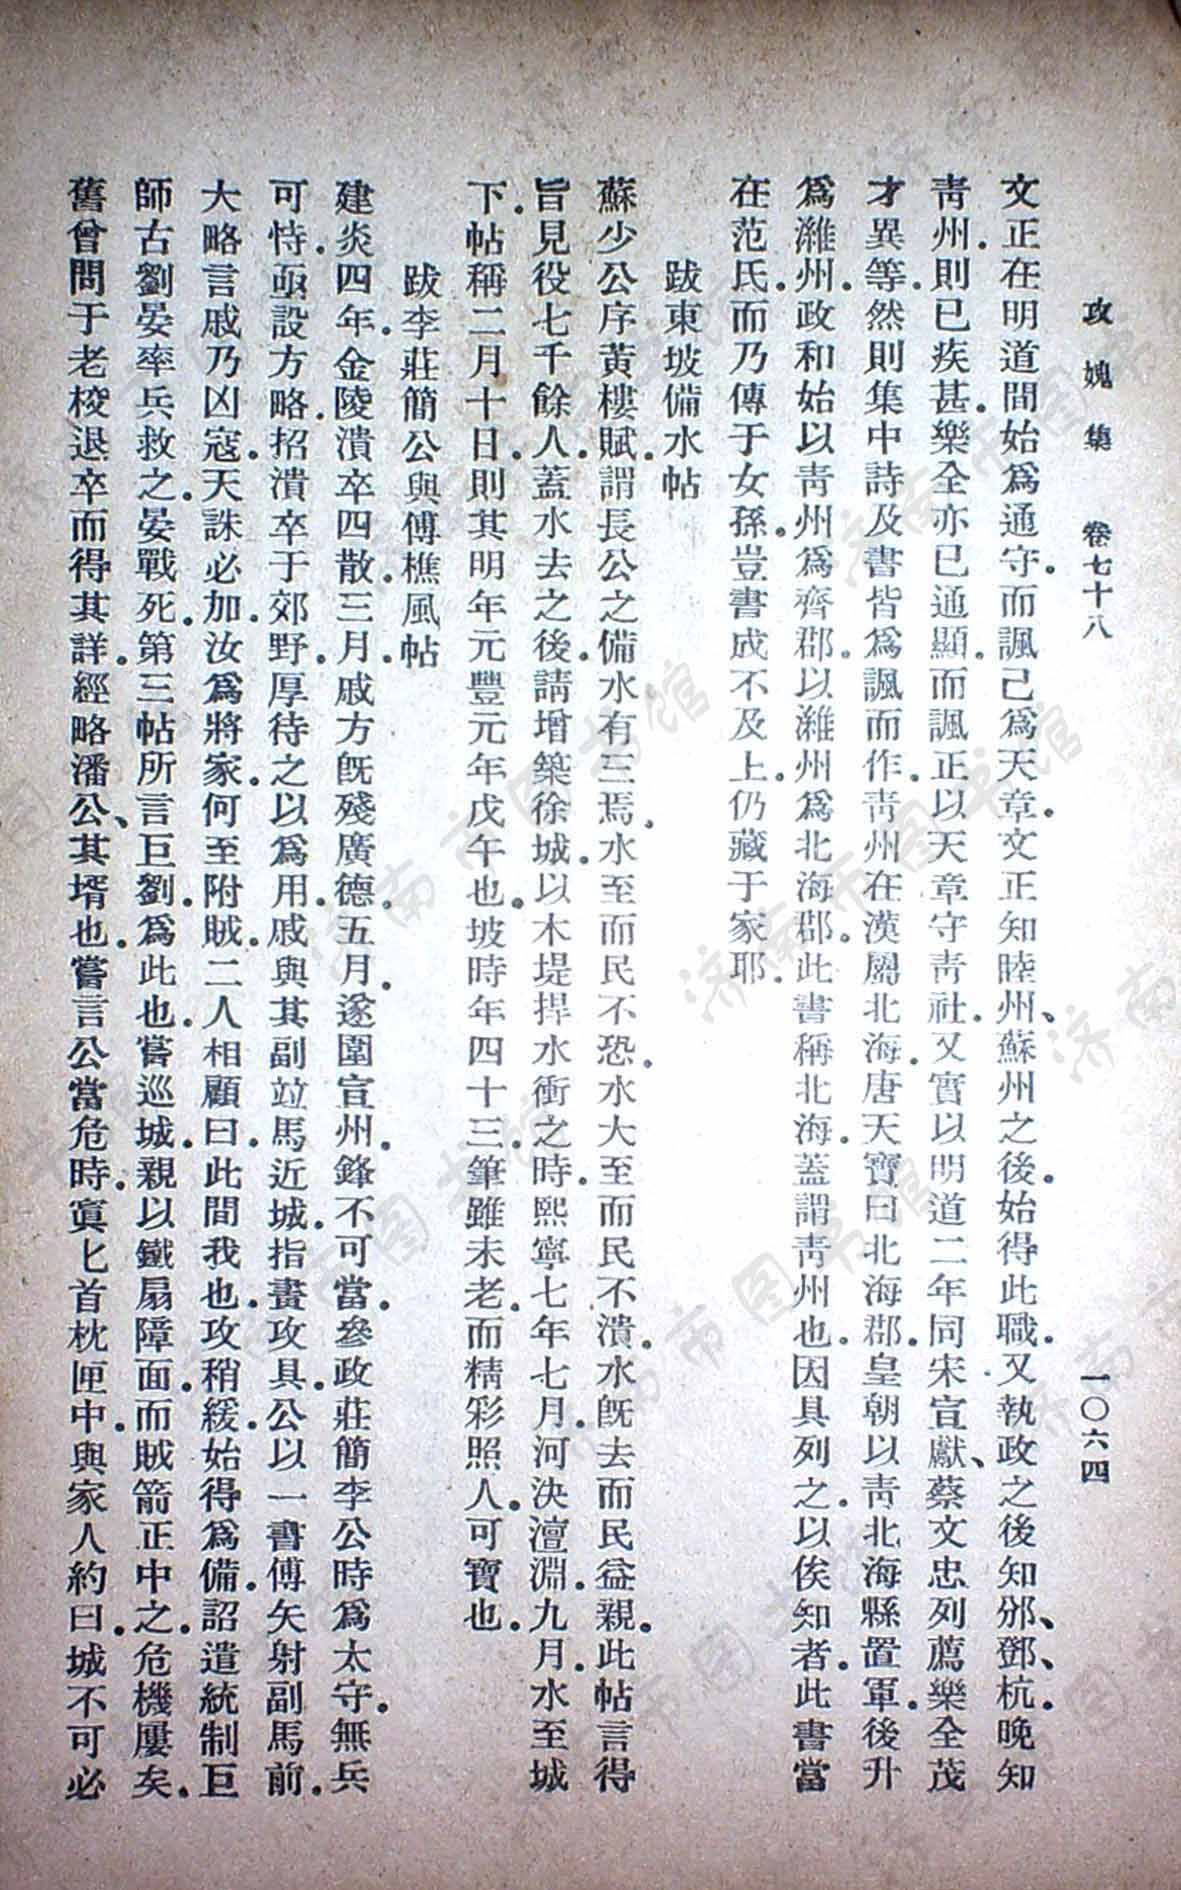 攻媿集　卷七十八　一〇六四
文正在明道間始爲通守．而諷已爲天章．文正知睦州、蘇州之後．始得此職．又執政之後知邠、鄧、杭．晚知
靑州．則已疾甚．樂全亦已通顯．而諷正以天章守靑社．又實以明道二年同宋宣獻、蔡文忠列薦樂全茂
才異等．然則集中詩及書皆爲諷而作．靑州在漢屬北海．唐天寶曰北海郡．皇朝以靑北海縣置軍．後升
爲濰州．政和始以靑州爲齊郡．以濰州爲北海郡．此書稱北海．蓋謂靑州也．因具列之．以俟知者．此書當
在范氏．而乃傳于女孫．豈書成不及上．仍藏于家耶．
跋東坡備水帖
蘇少公序黃樓賦．謂長公之備水有三焉．水至而民不恐．水大至而民不潰．水旣去而民益親．此帖言得
旨見役七千餘人．蓋水去之後．請增築徐城．以木堤捍水衝之時．熙寧七年七月．河決澶淵．九月．水至城
下．帖稱二月十日．則其明年元豐元年戊午也．坡時年四十三．筆雖未老．而精彩照人．可寶也．
跋李莊簡公與傅樵風帖
建炎四年．金陵潰卒四散．三月．戚方旣殘廣德．五月．遂圍宣州．鋒不可當．參政莊簡李公時爲太守．無兵
可恃．亟設方略．招潰卒于郊野．厚待之以爲用．戚與其副竝馬近城．指畫攻具．公以一書傅矢射副馬前．
大略言戚乃凶寇．天誅必加．汝爲將家．何至附賊．二人相顧曰．此間我也．攻稍緩．始得爲備．詔遣統制巨
師古劉晏率兵救之．晏戰死．第三帖所言巨劉．爲此也．嘗巡城．親以鐵扇障面．而賊箭正中之．危機屢矣．
舊曾問于老校退卒而得其詳．經略潘公、其壻也．嘗言公當危時．寘匕首枕匣中．與家人約曰．城不可必